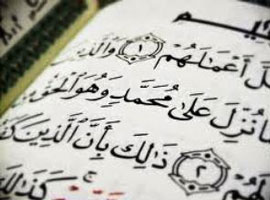 أَعْمَٰلَهُمْ ١ وَٱلَّذِ
نُزِّلَ عَلَىٰ مُحَمَّدٍ وَهُوَ ٱلْحَقُّ مِن
٢ ذَٰلِكَ بِأَنَّ ٱلَّذِينَ كَفَ
كَذَٰلِكَ